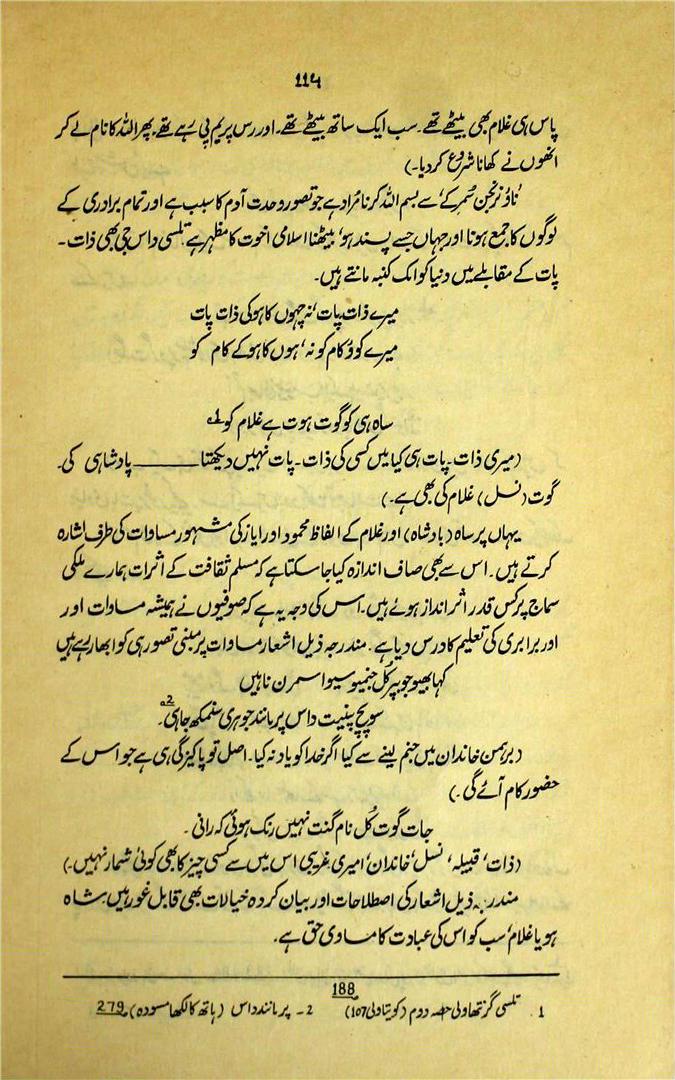 114
پاس ہی غلام بھی بیٹھے تھے۔ سب ایک ساتھ بیٹھے تھے۔ اور رس پریم پی رہے تھے۔ پھر اللہ کا نام لے کر
انھوں نے کھانا شروع کردیا۔)
'ناؤ نرنجن سُمر کے' سے بسم اللہ کرنا مُراد ہے جو تصور وحدت آدم کا سبب ہے اور تمام برادری کے
لوگوں کا جمع ہونا اور جہاں جسے پسند ہو، بیٹھنا اسلامی اخوت کا مظہر ہے تلسی داس جی بھی ذات۔
پات کے مقابلے میں دنیا کو ایک کنبہ مانتے ہیں۔
میرے ذات پات، نہ چہوں کا ہو کی ذات پات
میرے کوؤ کام کو نہ، ہوں کا ہو کے کام کو
ساہ ہی کو گوت ہوت ہے غلام کو 1؎
(میری ذات۔ پات ہی کیا میں کسی کی ذات۔ پات نہیں دیکھتا ـــــــ پادشاہی کی۔
گوت (نسل) غلام کی بھی ہے۔)
یہاں پر ساہ (بادشاہ) اور غلام کے الفاظ محمود اور ایاز کی مشہور مساوات کی طرف اشارہ
کرتے ہیں۔ اس سے بھی صاف اندازہ کیا جاسکتا ہے کہ مسلم ثقافت کے اثرات ہمارے ملکی
سماج پر کس قدر اثر انداز ہوئے ہیں۔ اس کی وجہ یہ ہے کہ صوفیوں نے ہمیشہ مساوات اور
اور برابری کی تعلیم کا درس دیا ہے۔ مندرجہ ذیل اشعار مساوات پر مبنی تصور ہی کو ابھار رہے ہیں
کہا بھیو جو بپر کُل جنمیو سیوا سمرن ناہیں
سوپچ پنیت داس پرمانند جو ہری سنمکھ جاہی۔ 2؎
(برہمن خاندان میں جنم لینے سے کیا اگر خدا کو یاد نہ کیا۔ اصل تو پاکیزگی ہی ہے جو اس کے
حضور کام آئے گی۔)
جات گوت کُل نام گنت نہیں رنک ہوئی کہ رانی۔
(ذات، قبیلہ، نسل، خاندان، امیری غریبی اس میں سے کسی چیز کا بھی کوئی شمار نہیں۔)
مندرجہ ذیل اشعار کی اصطلاحات اور بیان کردہ خیالات بھی قابل غور ہیں۔ شاہ
ہو یا غلام، سب کو اس کی عبادت کا مساوی حق ہے۔
1۔ تلسی گرنتھاولی حصہ دوم (کویتاولی 107) 188 2۔ پرمانند داس (ہاتھ کا لکھا مسودہ) 279